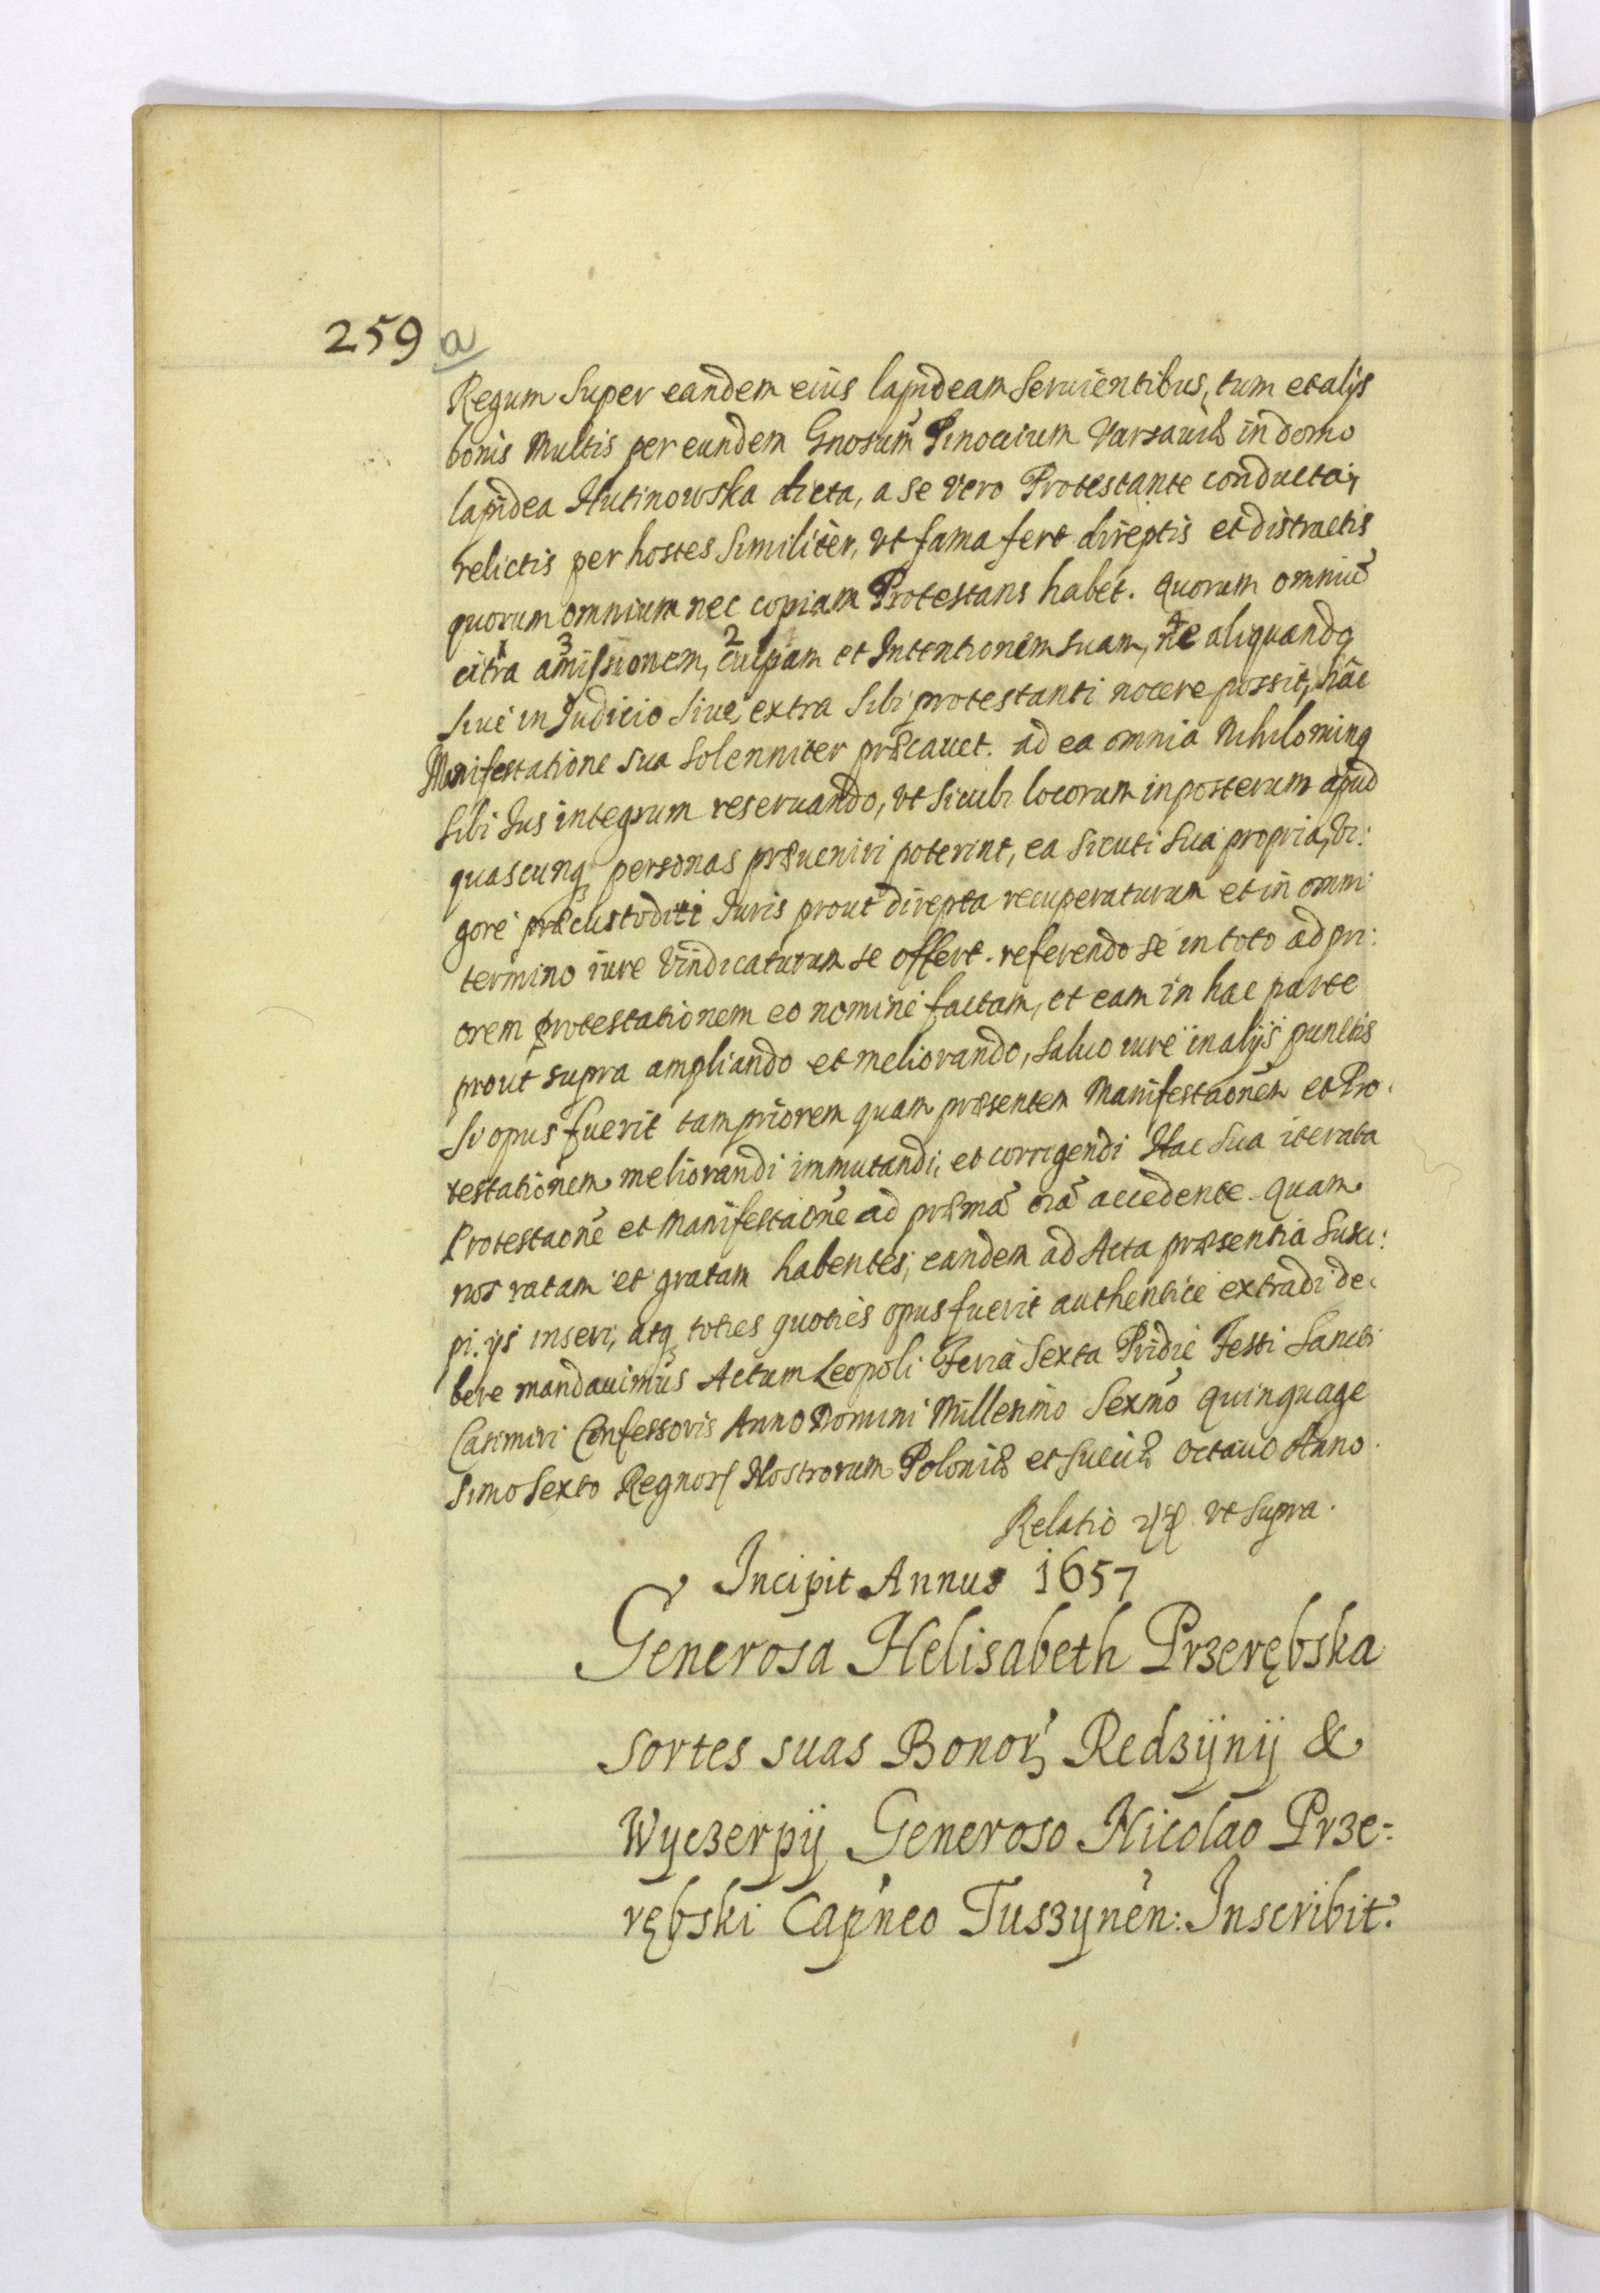 259 a
Regum super eandem eius lapideam seruientibus, tum et alijs
bonis Multis per eundem Gnosum Pinocium Varsauiæ in domo
lapidea Hutinowska dicta, a se vero Protestante conducta,
relictis per hostes similiter, vt fama fert direptis et distractis
quorum omnium nec copiam Protestans habet. quorum omniũ
citra amissionem, culpam et Intentionem suam, ne aliquando
siue in Judicio siue extra sibi protestanti nocere possit, hac
Manifestatione sua solenniter præcauet. ad ea omnia Nihilominq
sibi Jus integrum reseruando, vt sicubi locorum in posterum apud
quascunq personas præueniri poterint, ea sicuti sua propria, vi:
gore præcustoditi Juris prout direpta recuperaturum et in omni
termino iure vindicaturum se offert. referendo se in toto ad pri:
orem protestationem eo nomine factam, et eam in hac parte
prout supra ampliando et meliorando, saluo iure in alijs punctis
si opus fuerit tam priorem quam præsentem Manifestaõnem et Pro
testationem meliorandi immutandi, et corrigendi Hac sua iterata
Protestaõne et manifestaõne ad præmã oiã accedente quam
nos ratam et gratam habentes, eandem ad Acta præsentia susci:
pi. ijs inseri, atq toties quoties opus fuerit authentice extradi de
bere mandauimus Actum Leopoli Feria Sexta Pridie Festi Sancti
Casimiri Confessoris Anno Domini Millesimo Sexmo quinquage
simo Sexto Regnor Nostrorum Poloniæ et Sueciæ Octauo Anno.
Relatio vt supra.
Incipit Annus 1657
Generosa Helisabeth Przerębska
sortes suas Bonor Redzijnij &
Wyczerpij Generoso Nicolao Prze=
rębski Capneo Tuszynen: Inscribit.